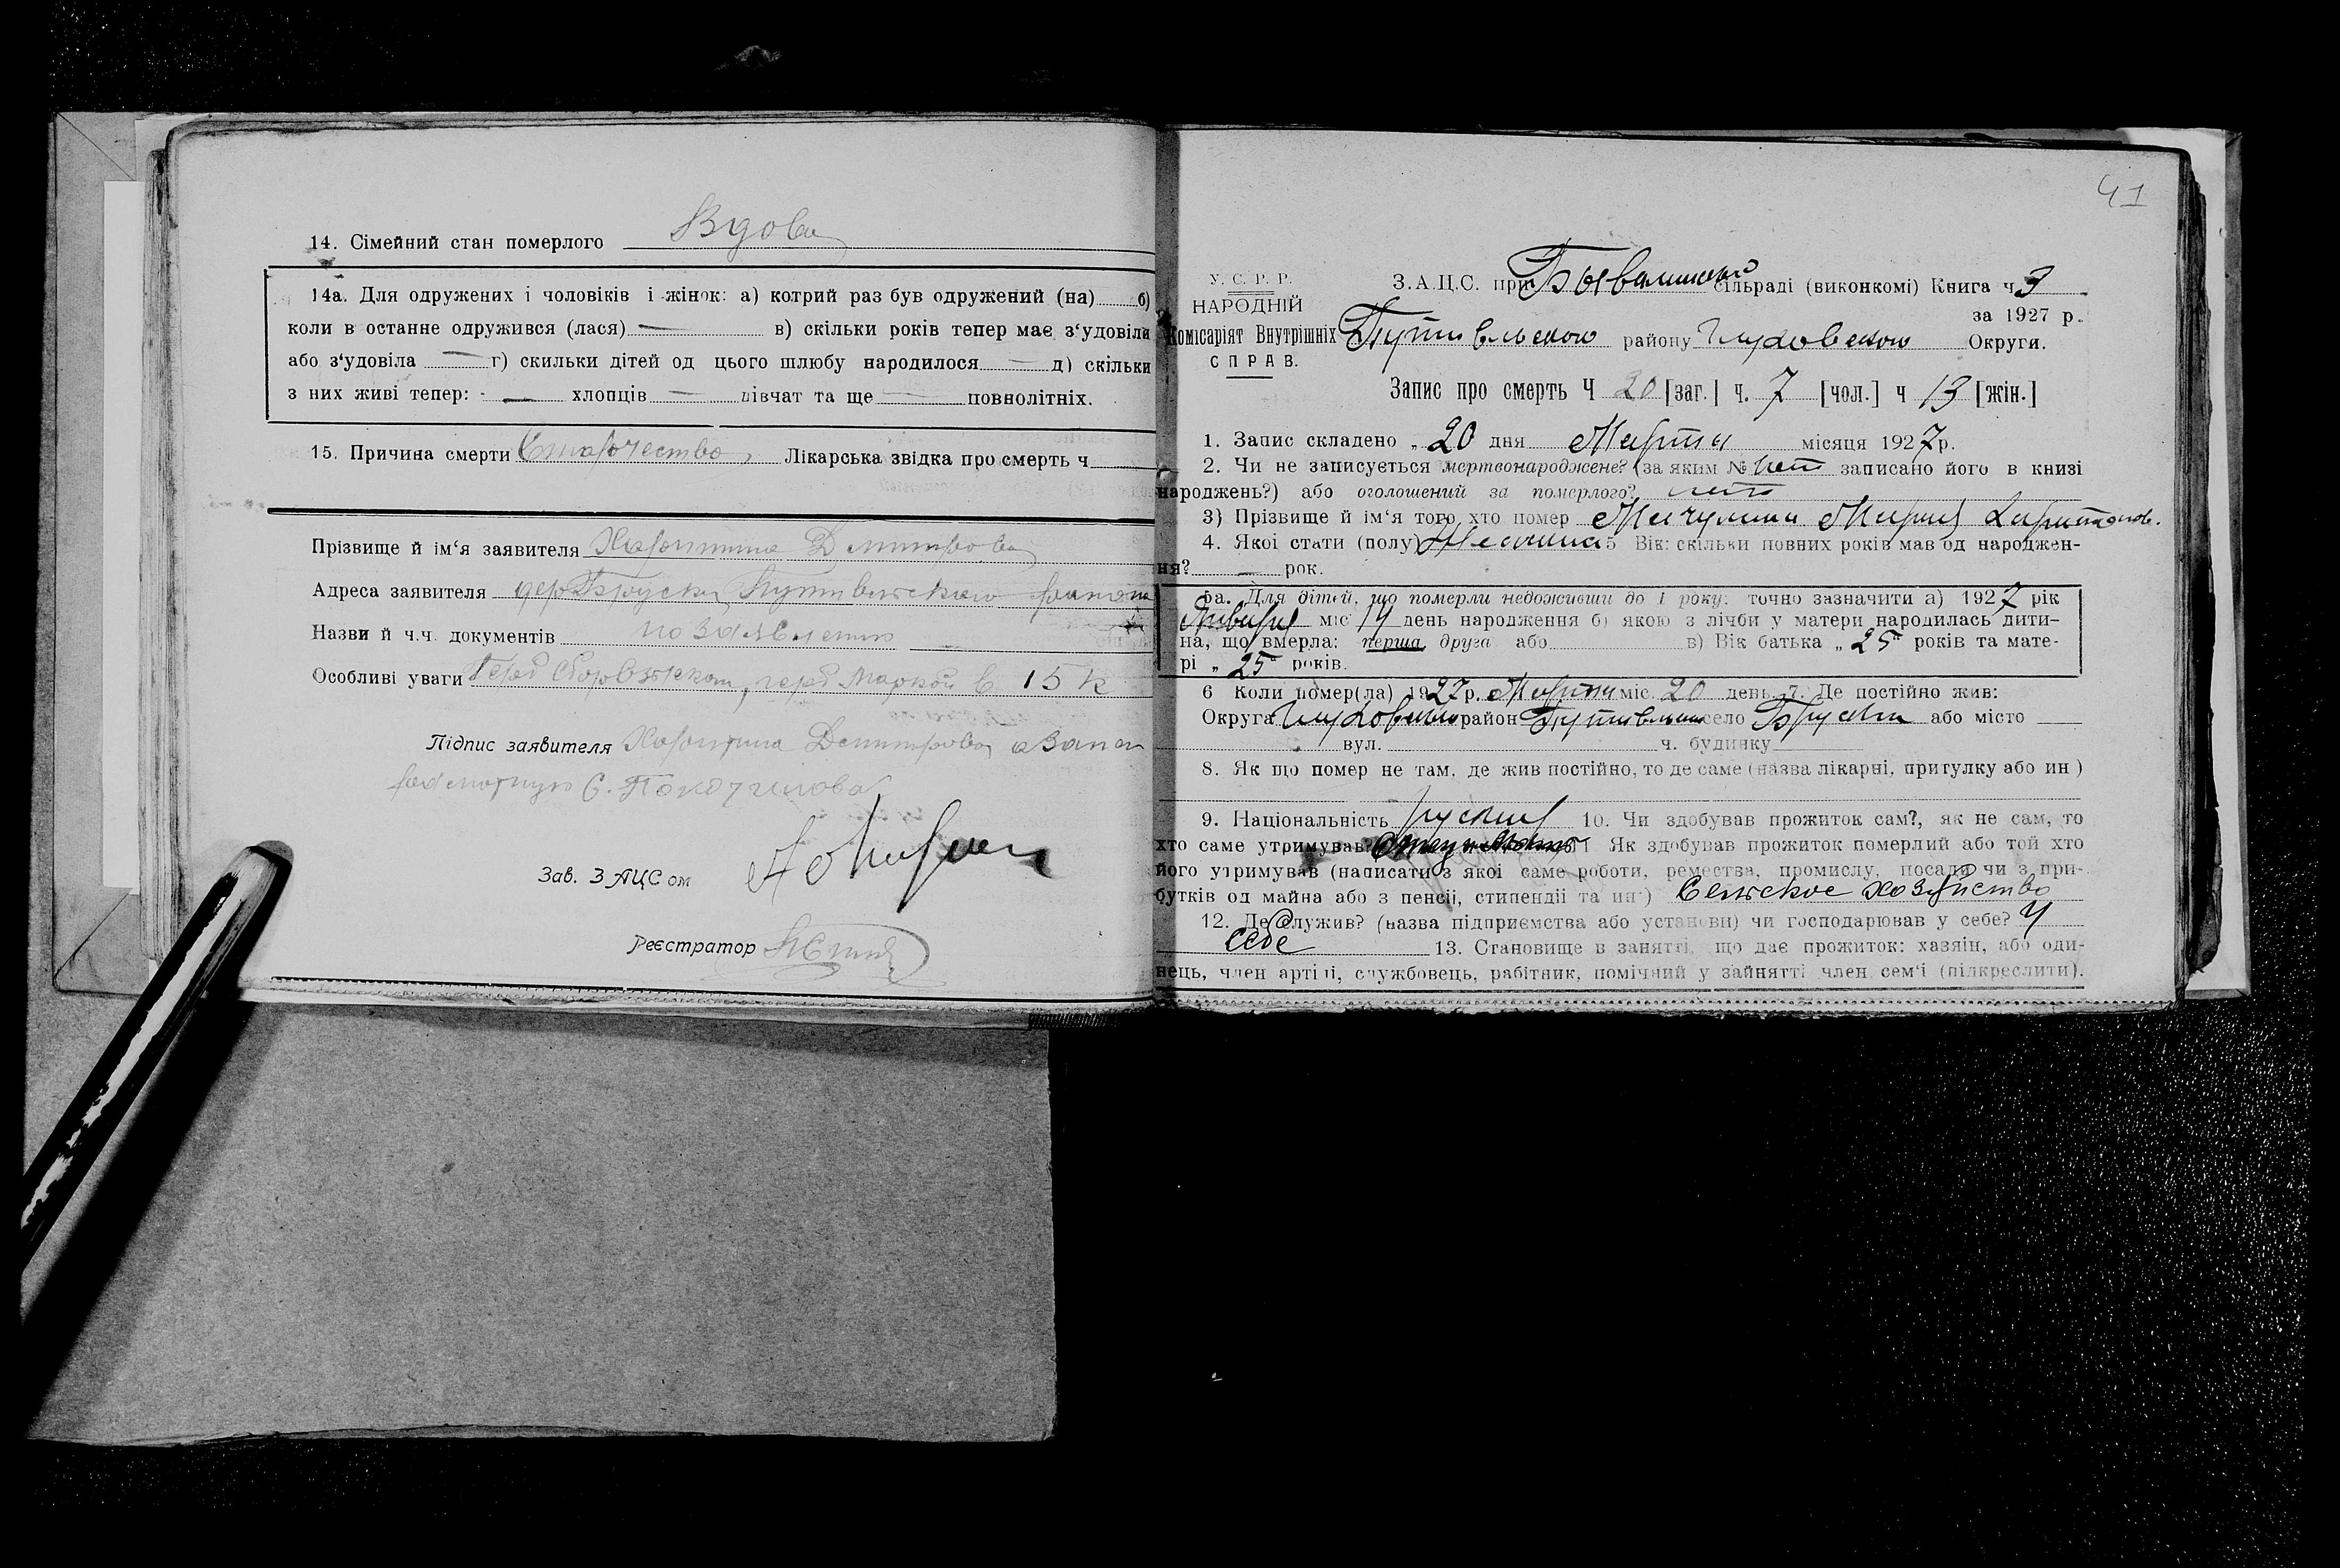 14. Сімейний стан померлого Вдова
14а. Для одружених і чоловіків і жінок: а) котрий раз був одружений (на) б)
коли в останне одружився (лася) — в) скільки років тепер має з‘удовіли
або з‘удовіла — г) скильки дітей од цього шлюбу народилося — д) скільки
з них живі тепер: — хлопців — дівчат та ще — повнолітніх.
15. Причина смерти Старчество Лікарська звідка про смерть ч.
Прізвище й ім‘я заявителя Харитина Демитрова
Адреса заявителя дер Бруски Путивльского района
Назви й ч.ч. документів по заявлению
Особливі уваги Герб Сбор взыскан, герб Маркой в 15 к
Підпис заявителя Харитина Демитрова а за не
грамотную С.
Зав. ЗАЦСом
Реєстратор
41
У. С. Р. Р.
НАРОДНІЙ
Комісаріят Внутрішніх
СПРАВ.
З.А.Ц.С. при сільраді (виконкомі) Книга ч 3
за 1927 р.
Путивльского району Глуховского Округи.
Запис про смерть Ч 20 [заг.] ч. 7 [чол.] ч 13 [жін.]
1. Запис складено „ 20 дня Марта місяця 1927 р.
2. Чи не записується мертвонароджене? (за яким № нет записано його в книзі
народжень?) або оголошений за померлого? нет
3) Прізвище й ім‘я того, хто помер Мачулина Мария Харитонов.
4. Якої стати (полу) Женина 5 Вік: скільки повних років мав од народжен-
ня? — рок.
5а. Для дітей, що померли недоживши до 1 року: точно зазначити а) 1927 рік
Января міс 14 день народження б) якою з лічби у матери народилась дити-
на, що вмерла: перша друга або в) Вік батька „ 25 “ років та мате-
рі „ 25 “ років.
6 Коли помер(ла) 1927 р. Марта міс. 20 день. 7. Де постійно жив:
Округа Глуховского район Путивльский село Бруски або місто
вул. ч. будинку
8. Як що помер не там, де жив постійно, то де саме (назва лікарні, притулку або ин)
9. Національність руская 10. Чи здобував прожиток сам?, як не сам, то
хто саме утримував? 11 Як здобував прожиток померлий або той хто
його утримував (написати з якої саме роботи, ремества, промислу, посади чи з при-
бутків од майна або з пенсії, стипендії та ин) Сельское хозяйство
12. Де служив? (назва підприємства або установи) чи господарював у себе? У
себе 13. Становище в занятті, що дає прожиток: хазяін, або оди-
нець, член артілі, службовець, рабітник, помічний у зайнятті член сем‘ї (підкреслити).